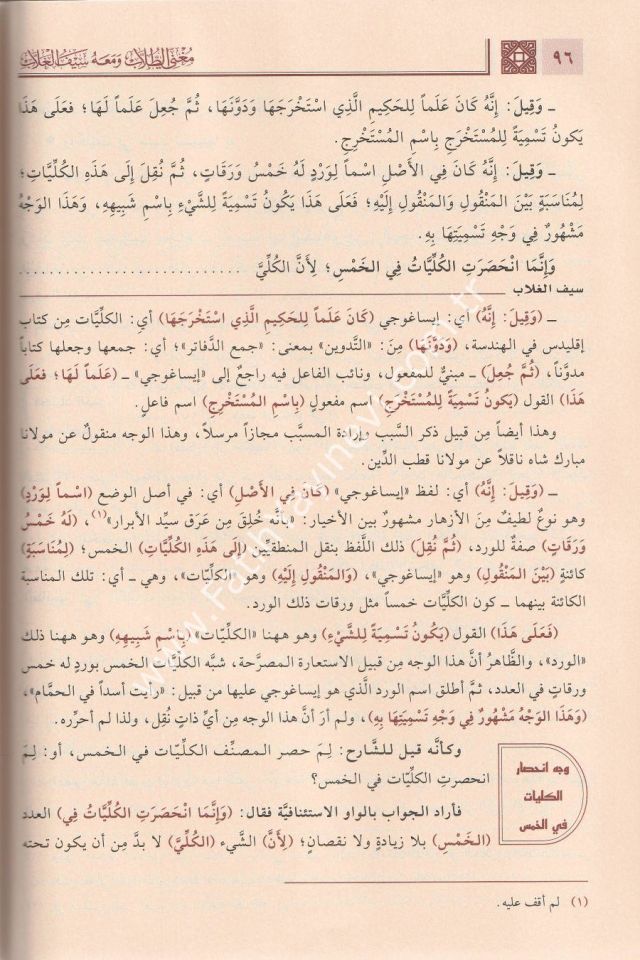 ٩٦
مُغْنِي الطُّلَّاب وَمَعَهُ سَيْفُ الغَلَّاب
ـ وَقِيلَ: إِنَّهُ كَانَ عَلَماً لِلحَكِيمِ الَّذِي اسْتَخْرَجَهَا وَدَوَّنَهَا، ثُمَّ جُعِلَ عَلَماً لَهَا؛ فَعَلَى هَذَا
يَكُونُ تَسْمِيَةً لِلمُسْتَخْرَجِ بِاسْمِ المُسْتَخْرِجِ.
ـ وَقِيلَ: إِنَّهُ كَانَ فِي الأَصْلِ اسْماً لِوَرْدٍ لَهُ خَمْسُ وَرَقَاتٍ، ثُمَّ نُقِلَ إِلَى هَذِهِ الكُلِّيَّاتِ؛
لِمُنَاسَبَةٍ بَيْنَ المَنْقُولِ وَالمَنْقُولِ إِلَيْهِ؛ فَعَلَى هَذَا يَكُونُ تَسْمِيَةً لِلشَّيْءِ بِاسْمِ شَبِيهِهِ، وَهَذَا الوَجْهُ
مَشْهُورٌ فِي وَجْهِ تَسْمِيَتِهَا بِهِ.
وَإِنَّمَا انْحَصَرَتِ الكُلِّيَّاتُ فِي الخَمْسِ؛ لِأَنَّ الكُلِّيَّ ............................
سيف الغلاب
ـ (وَقِيلَ: إِنَّهُ) أي: إيساغوجي (كَانَ عَلَماً لِلحَكِيمِ الَّذِي اسْتَخْرَجَهَا) أي: الكليَّات مِن كتاب
إقليدس في الهندسة، (وَدَوَّنَهَا) مِنَ: «التَّدوين» بمعنى: «جمع الدَّفاتر»؛ أي: جمعها وجعلها كتاباً
مدوَّناً، (ثُمَّ جُعِلَ) ـ مبنيٌّ للمفعول، ونائب الفاعل فيه راجعٌ إلى «إيساغوجي» ـ (عَلَماً لَهَا؛ فَعَلَى
هَذَا) القول (يَكُونُ تَسْمِيَةً لِلمُسْتَخْرَجِ) اسم مفعولٍ (بِاسْمِ المُسْتَخْرِجِ) اسم فاعلٍ.
وهذا أيضاً مِن قبيل ذكر السَّبب وإرادة المسبَّب مجازاً مرسلاً، وهذا الوجه منقولٌ عن مولانا
مبارك شاه ناقلاً عن مولانا قطب الدِّين.
ـ (وَقِيلَ: إِنَّهُ) أي: لفظ «إيساغوجي» (كَانَ فِي الأَصْلِ) أي: في أصل الوضع (اسْماً لِوَرْدٍ)
وهو نوعٌ لطيفٌ مِنَ الأزهار مشهورٌ بين الأخيار: «بأنَّه خُلِقَ مِن عَرَق سيِّد الأبرار»(١)، (لَهُ خَمْسُ
وَرَقَاتٍ) صفةٌ للورد، (ثُمَّ نُقِلَ) ذلك اللَّفظ بنقل المنطقيِّين (إِلَى هَذِهِ الكُلِّيَّاتِ) الخمس؛ (لِمُنَاسَبَةٍ)
كائنةٍ (بَيْنَ المَنْقُولِ) وهو «إيساغوجي»، (وَالمَنْقُولِ إِلَيْهِ) وهو «الكلِّيَّات»، وهي ـ أي: تلك المناسبة
الكائنة بينهما ـ كون الكلِّيَّات خمساً مثل ورقات ذلك الورد.
(فَعَلَى هَذَا) القول (يَكُونُ تَسْمِيَةً لِلشَّيْءِ) وهو ههنا «الكلِّيَّات» (بِاسْمِ شَبِيهِهِ) وهو ههنا ذلك
«الورد»، والظَّاهرُ أنَّ هذا الوجه مِن قبيل الاستعارة المصرَّحة، شبَّه الكلِّيَّات الخمس بوردٍ له خمس
ورقاتٍ في العدد، ثمَّ أطلق اسم الورد الَّذي هو إيساغوجي عليها مِن قبيل: «رأيت أسداً في الحمَّام»،
(وَهَذَا الوَجْهُ مَشْهُورٌ فِي وَجْهِ تَسْمِيَتِهَا بِهِ)، ولم أرَ أنَّ هذا الوجه مِن أيِّ ذاتٍ نُقِل، ولذا لم أحرِّره.
وجه انحصار
الكليات
في الخمس
وكأنَّه قيل للشَّارح: لِمَ حصر المصنِّف الكلِّيَّات في الخمس، أو: لِمَ
انحصرتِ الكلِّيَّات في الخمس؟
فأراد الجواب بالواو الاستئنافيَّة فقال: (وَإِنَّمَا انْحَصَرَتِ الكُلِّيَّاتُ فِي) العدد
(الخَمْسِ) بلا زيادةٍ ولا نقصانٍ؛ (لِأَنَّ) الشَّيء (الكُلِّيَّ) لا بدَّ مِن أن يكون تحته
(١) لم أقف عليه.